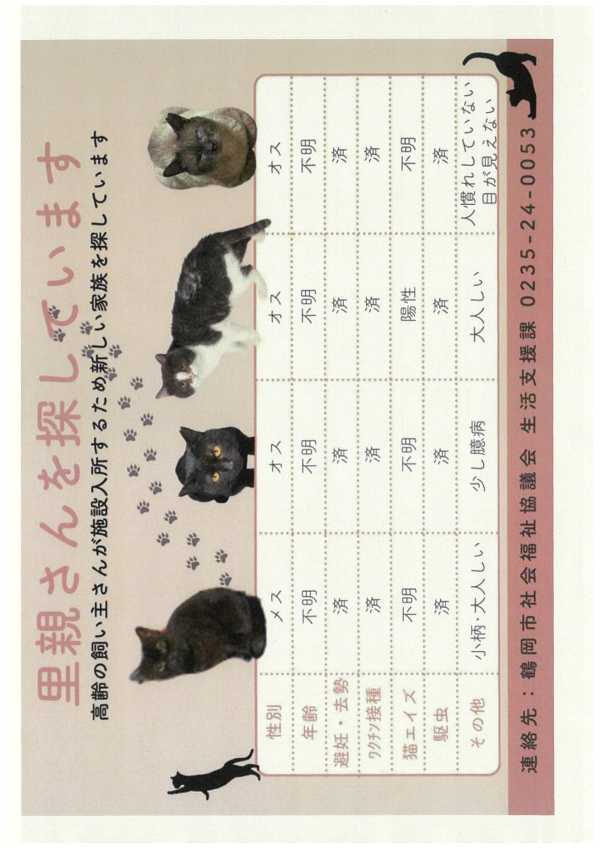 里親さんを探しています
高齢の飼い主さんが施設入所するため新しい家族を探しています
性別 メス オス オス オス
年齢 不明 不明 不明 不明
避妊・去勢 済 済 済 済
ワクチン接種 済 済 済 済
猫エイズ 不明 不明 陽性 不明
駆虫 済 済 済 済
その他 小柄・大人しい 少し臆病 大人しい 人慣れしていない
目が見えない
連絡先：鶴岡市社会福祉協議会 生活支援課 0235-24-0053